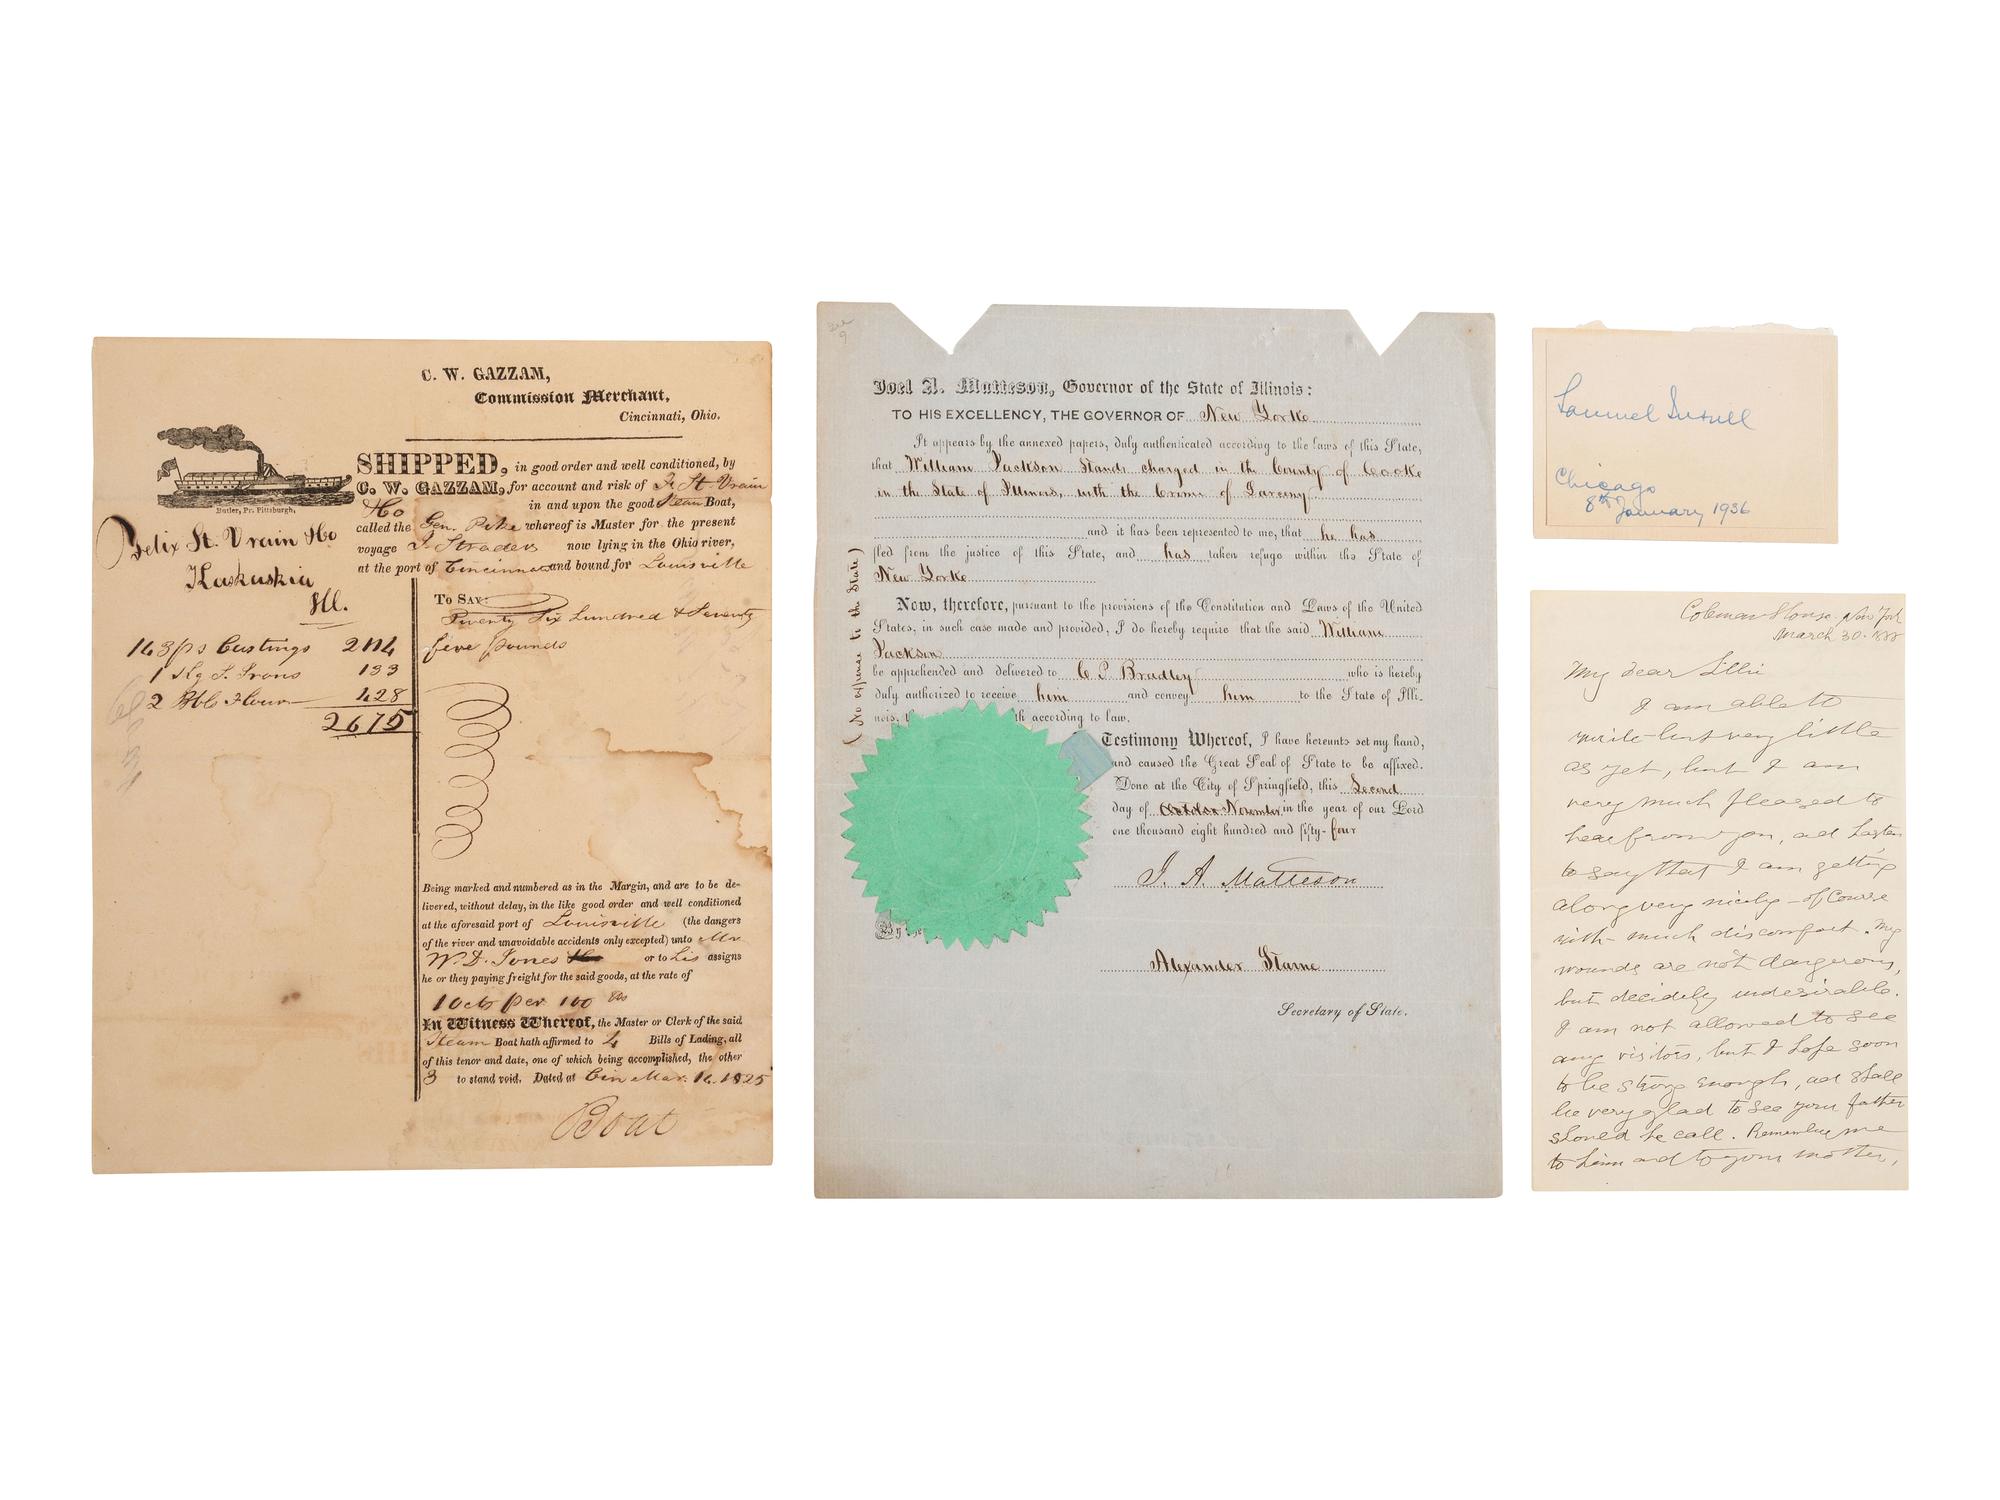 C. W. GAZZAM,
Commission Merchant,
Cincinnati, Ohio.
Butler, Pr. Pittsburgh,
Felix St. Vrain &Co
Kaskaskia
Ill.
143 ps Castings 2114
1 Kg S. Irons 133
2 Bbls Flour 428
2675
SHIPPED, in good order and well conditioned, by
C. W. GAZZAM, for account and risk of F. St. Vrain
&Co in and upon the good Steam Boat,
called the Gen. Pike whereof is Master for the present
voyage J. Strader now lying in the Ohio river,
at the port of Cincinnati and bound for Louisville
To Say:
Twenty Six Hundred & Seventy
five pounds
Being marked and numbered as in the Margin, and are to be de-
livered, without delay, in the like good order and well conditioned
at the aforesaid port of Louisville (the dangers
of the river and unavoidable accidents only excepted) unto Mr.
W. D. Jones or to his assigns
he or they paying freight for the said goods, at the rate of
10 cts per 100 lbs
In Witness Whereof, the Master or Clerk of the said
Steam Boat hath affirmed to 4 Bills of Lading, all
of this tenor and date, one of which being accomplished, the other
3 to stand void. Dated at Cin Mar. 16. 1825
Boat
Joel A. Matteson, Governor of the State of Illinois:
TO HIS EXCELLENCY, THE GOVERNOR OF New Yorke
It appears by the annexed papers, duly authenticated according to the laws of this State,
that William Jackson Stands charged in the County of Cooke
in the State of Illinois, with the Crime of Larceny
and it has been represented to me, that he has
fled from the justice of this State, and has taken refuge within the State of
New Yorke
Now, therefore, pursuant to the provisions of the Constitution and Laws of the United
States, in such case made and provided, I do hereby require that the said William
Jackson
be apprehended and delivered to C. P. Bradley who is hereby
duly authorized to receive him and convey him to the State of Illi-
nois, according to law.
Testimony Whereof, I have hereunto set my hand,
and caused the Great Seal of State to be affixed.
Done at the City of Springfield, this Second
day of October November in the year of our Lord
one thousand eight hundred and fifty-four
J. A. Matteson
By the
Alexander Starne
Secretary of State.
(No expense to the State)
Samuel Insull
Chicago
8th January 1936
Coleman House. New York
March 30. 188
My dear Lilli
I am able to
write but very little
as yet, but I am
very much pleased to
hear from you, and hasten
to say that I am getting
along very nicely - of course
with much discomfort. My
wounds are not dangerous,
but decidedly undesirable.
I am not allowed to see
any visitors, but I hope soon
to be strong enough, and shall
be very glad to see your father
should he call. Remember me
to him and to your mother,